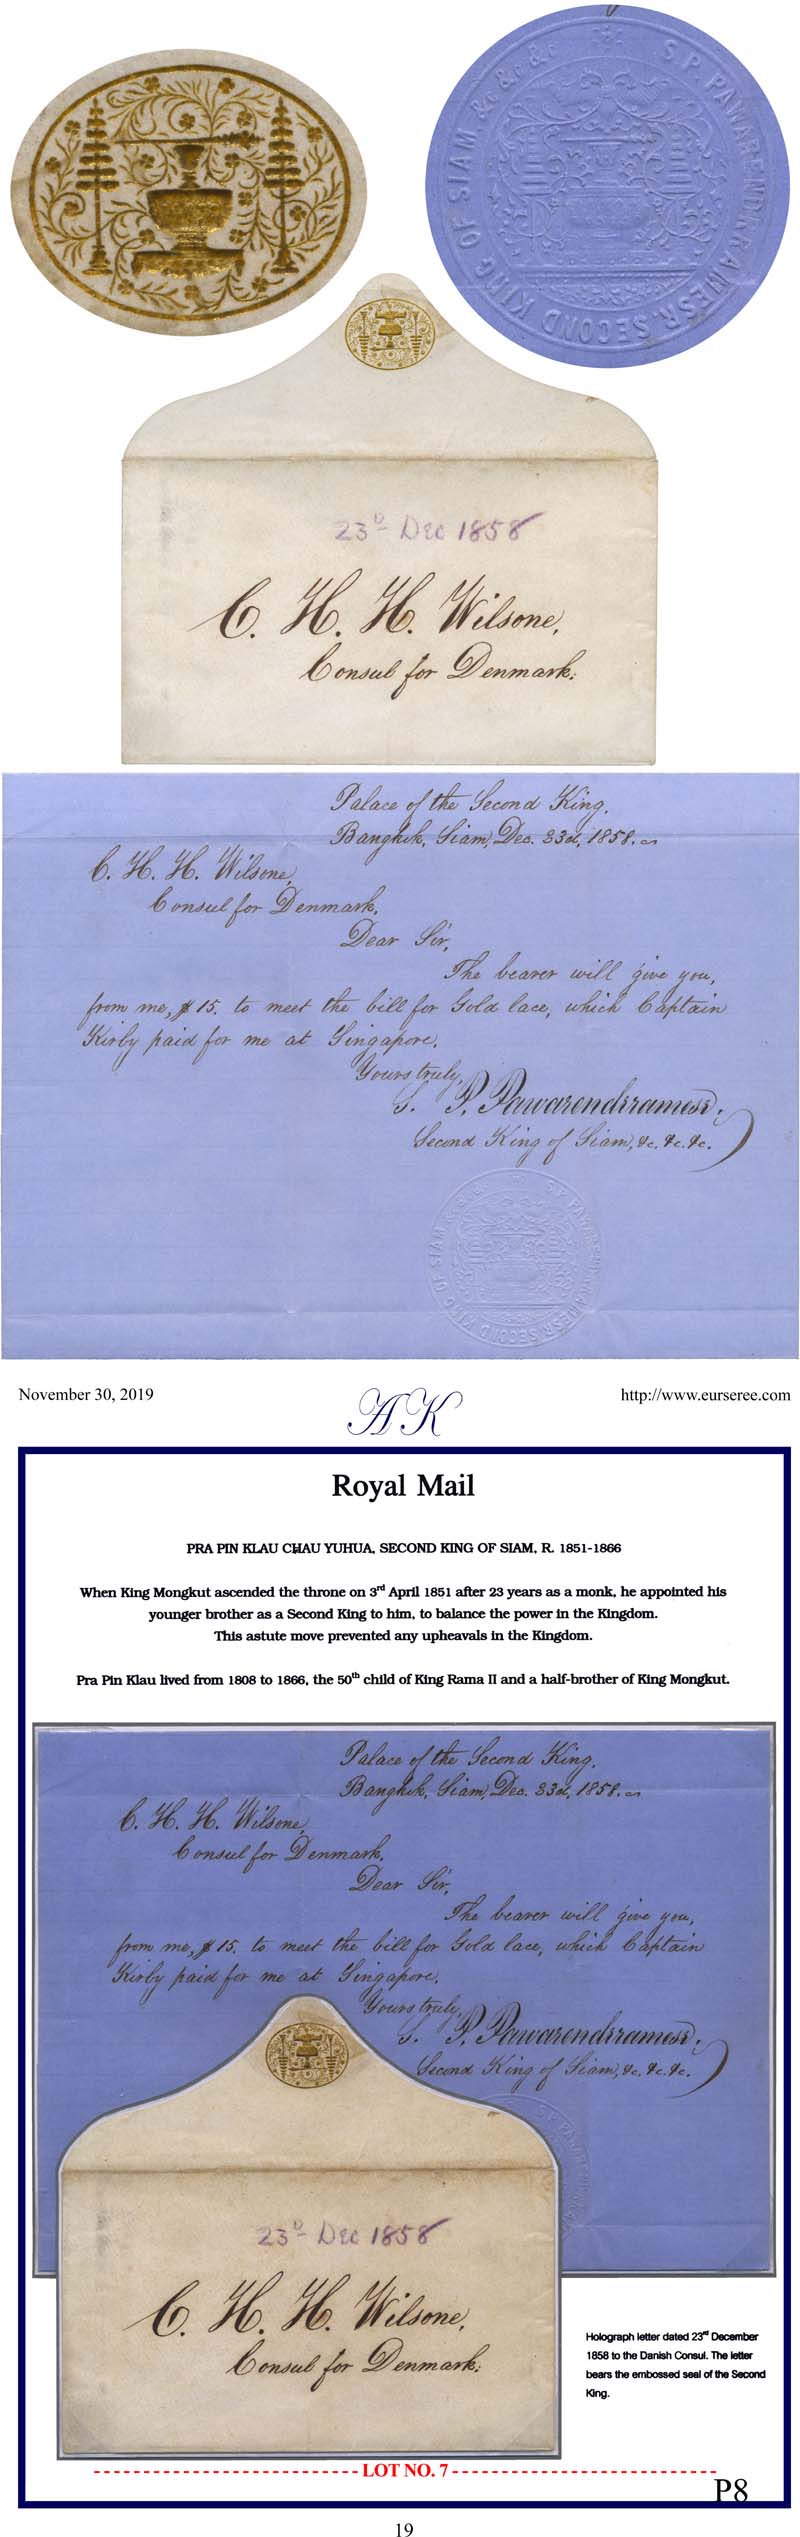 S. P. PAWARENDRRAMESR. SECOND KING OF SIAM. &c &c &c
23D Dec 1858
C. H. H. Wilsone,
Consul for Denmark.
Palace of the Second King.
Bangkok, Siam, Dec. 23d, 1858.
C. H. H. Wilsone,
Consul for Denmark,
Dear Sir,
The bearer will give you,
from me, $ 15. to meet the bill for Gold lace, which Captain
Kirby paid for me at Singapore.
Yours truly,
S. P. Pawarendrramesr.
Second King of Siam, &c. &c. &c.
S. P. PAWARENDRRAMESR. SECOND KING OF SIAM. & & &
November 30, 2019
AK
http://www.eurseree.com
Royal Mail
PRA PIN KLAU CHAU YUHUA, SECOND KING OF SIAM, R. 1851-1866
When King Mongkut ascended the throne on 3rd April 1851 after 23 years as a monk, he appointed his
younger brother as a Second King to him, to balance the power in the Kingdom.
This astute move prevented any upheavals in the Kingdom.
Pra Pin Klau lived from 1808 to 1866, the 50th child of King Rama II and a half-brother of King Mongkut.
Palace of the Second King.
Bangkok, Siam, Dec. 23d, 1858.
C. H. H. Wilsone,
Consul for Denmark,
Dear Sir,
The bearer will give you,
from me, $ 15. to meet the bill for Gold lace, which Captain
Kirby paid for me at Singapore.
Yours truly,
S. P. Pawarendrramesr.
Second King of Siam, &c. &c. &c.
23D Dec 1858
C. H. H. Wilsone,
Consul for Denmark.
Holograph letter dated 23rd December
1858 to the Danish Consul. The letter
bears the embossed seal of the Second
King.
LOT NO. 7
P8
19